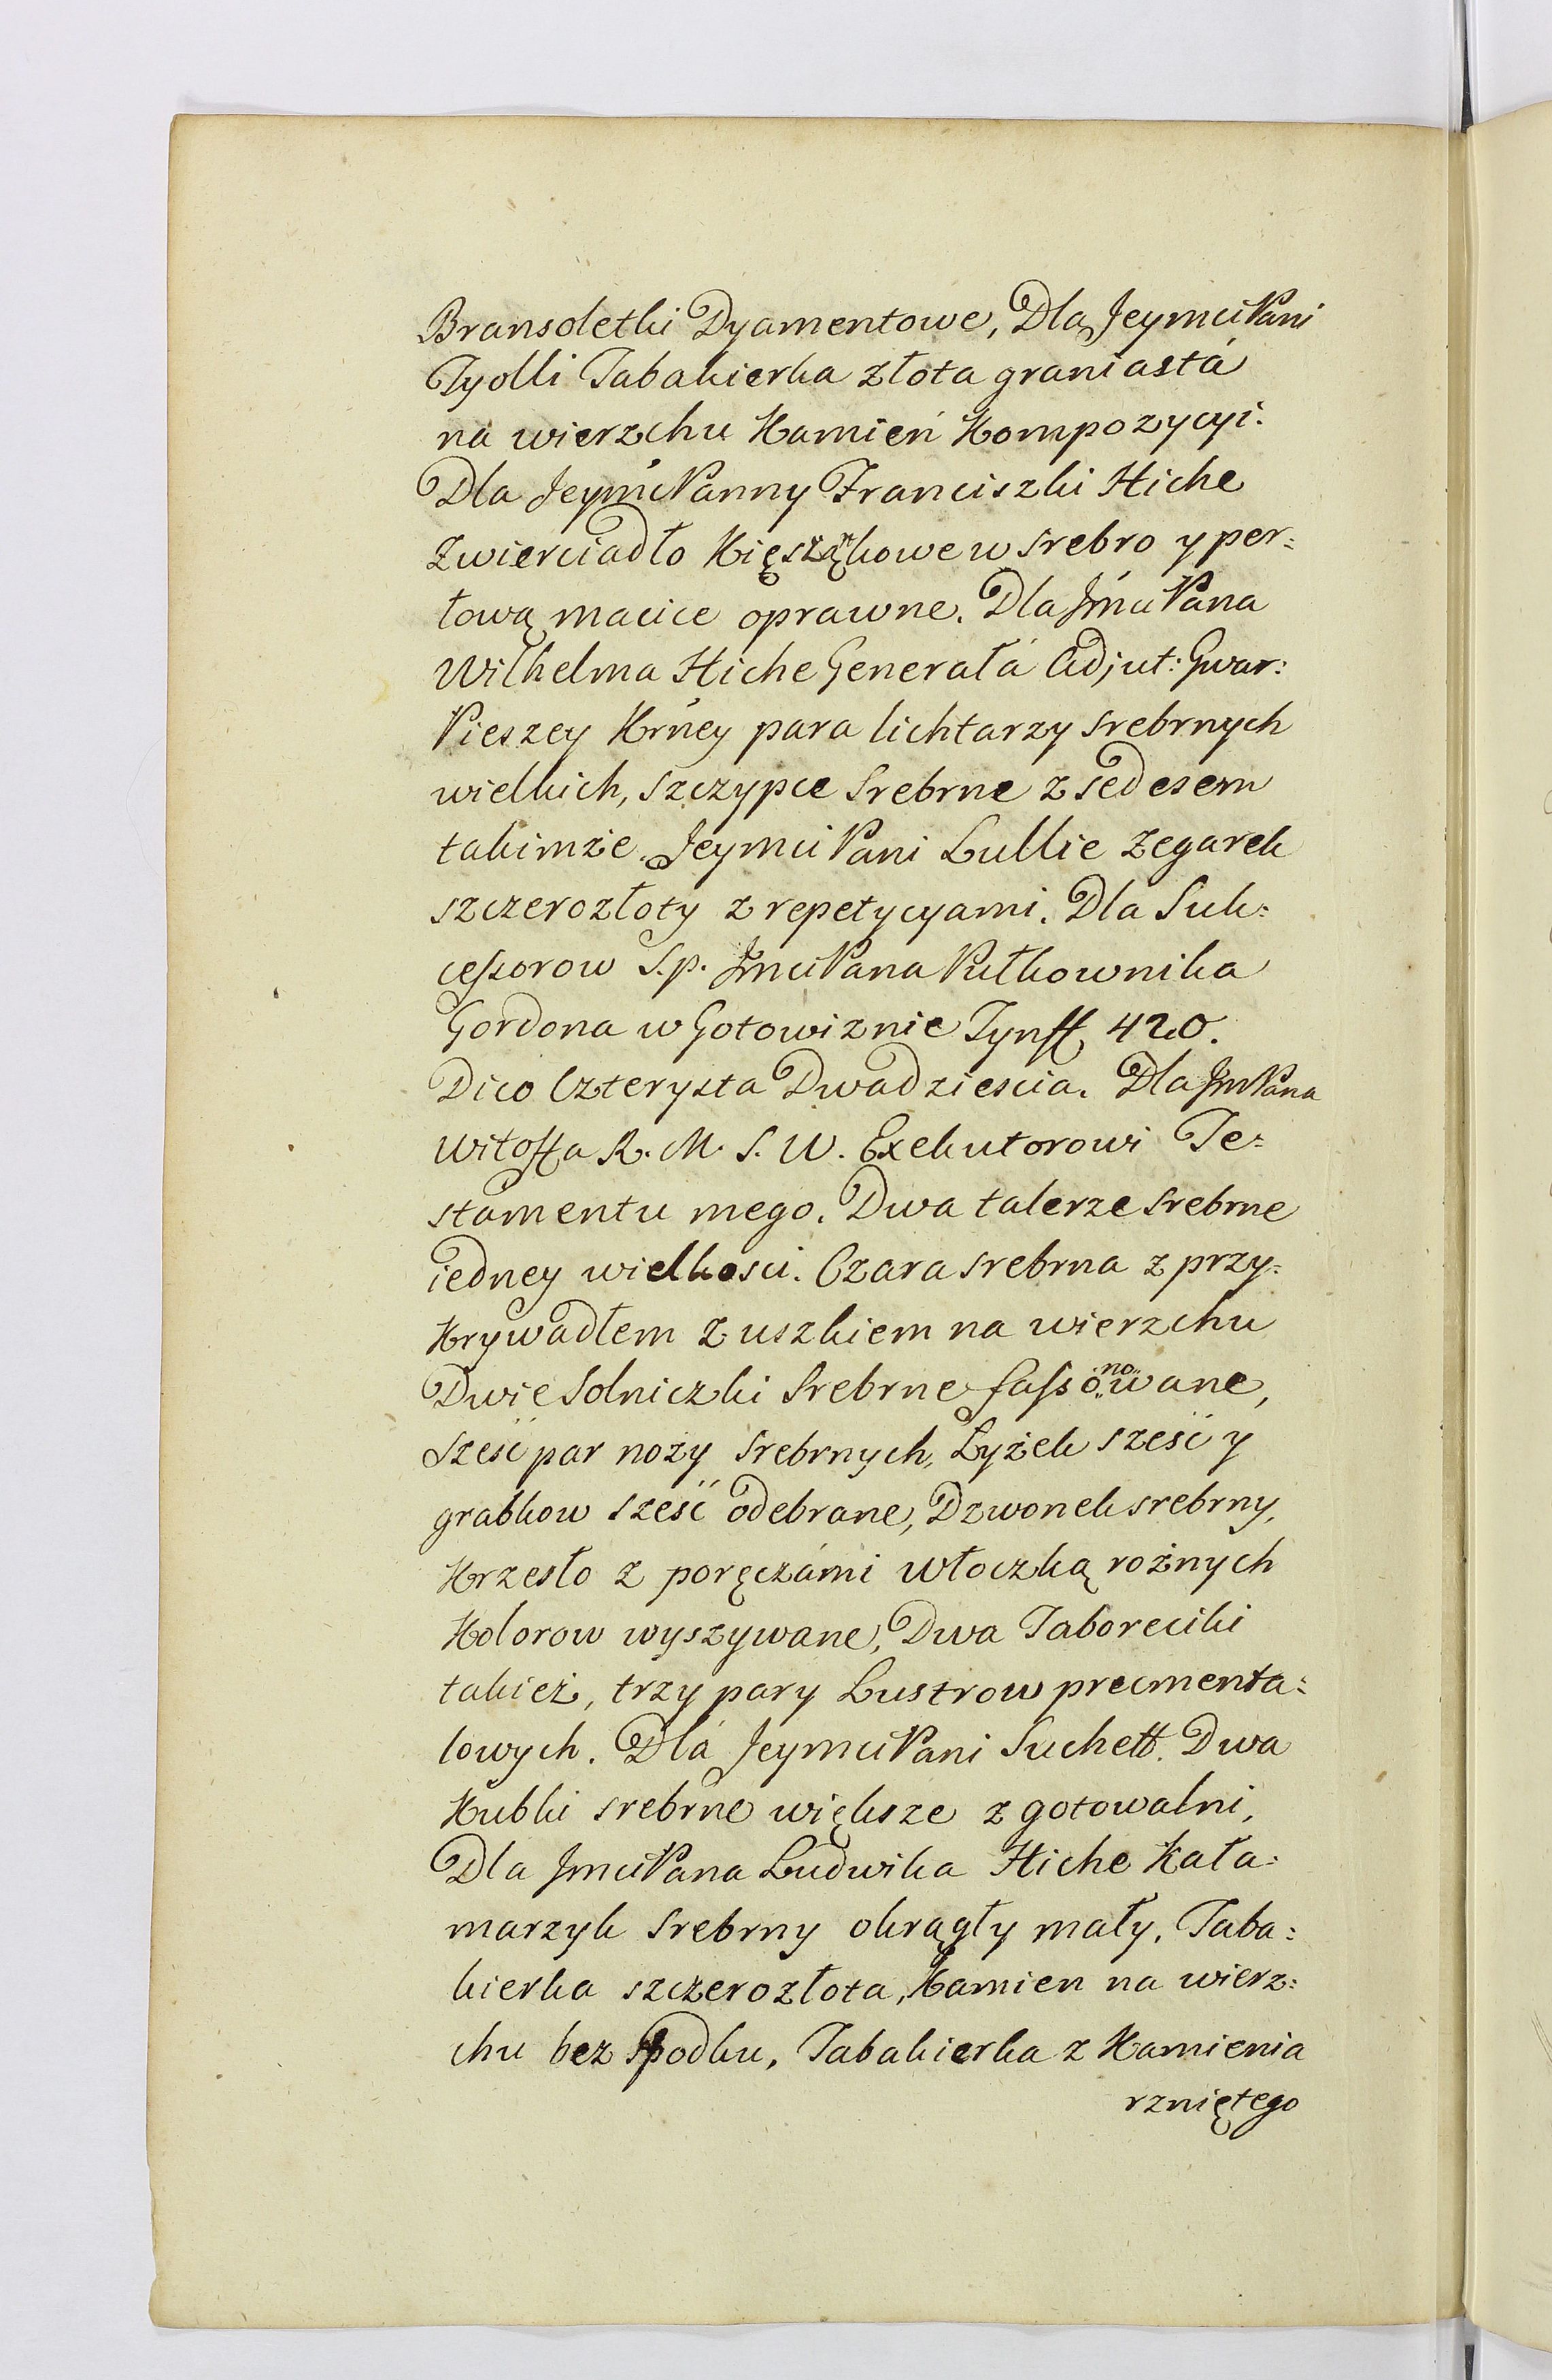 Bransoletki Dyamentowe, Dla Jeymci Pani
Tyolli Tabakierka złota graniasta
na wierzchu Kamień Kompozycyi.
Dla Jeymć Panny Franciszki Hiche
Zwierciadło Kięsząkowe w srebro y per=
tową macice oprawne. Dla Jmci Pana
Wilhelma Hiche Generałá Adjut: Gwar:
Pieszey Krney para lichtarzy srebrnych
wielkich, szczypce srebrne z sedesem
takimże. Jeymci Pani Lullie Zegarek
szczerozłoty z repetycyami. Dla Suk=
cessorow S.p. Jmci Pana Pułkownika
Gordona w Gotowiznie Tynff 420.
Dico Czterysta Dwadziescia. Dla Jm Pana
Witoffa R. M. S. W. Exekutorowi Te=
stamentu mego. Dwa talerze srebrne
iedney wielkosci. Czara srebrna z przy=
Krywadłem z uszkiem na wierzchu
Dwie Solniczki srebrne fassonowane,
Sześć par noży srebrnych, Łyżek sześć y
grabkow sześć odebrane, Dzwonek srebrny,
Krzesło z poręczámi włoczką rożnych
Kolorow wyszywane, Dwa Taboreciki
takież, trzy pary Lustrow precmenta=
lowych. Dlá Jeymci Pani Suchett. Dwa
Kubki srebrne większe z gotowalni,
Dla Jmci Pana Ludwika Hiche Kała=
marzyk srebrny okrągły mały. Taba=
kierka szczerozłota, Kamien na wierz=
chu bez spodku, Tabakierka z Kamienia
rzniętego